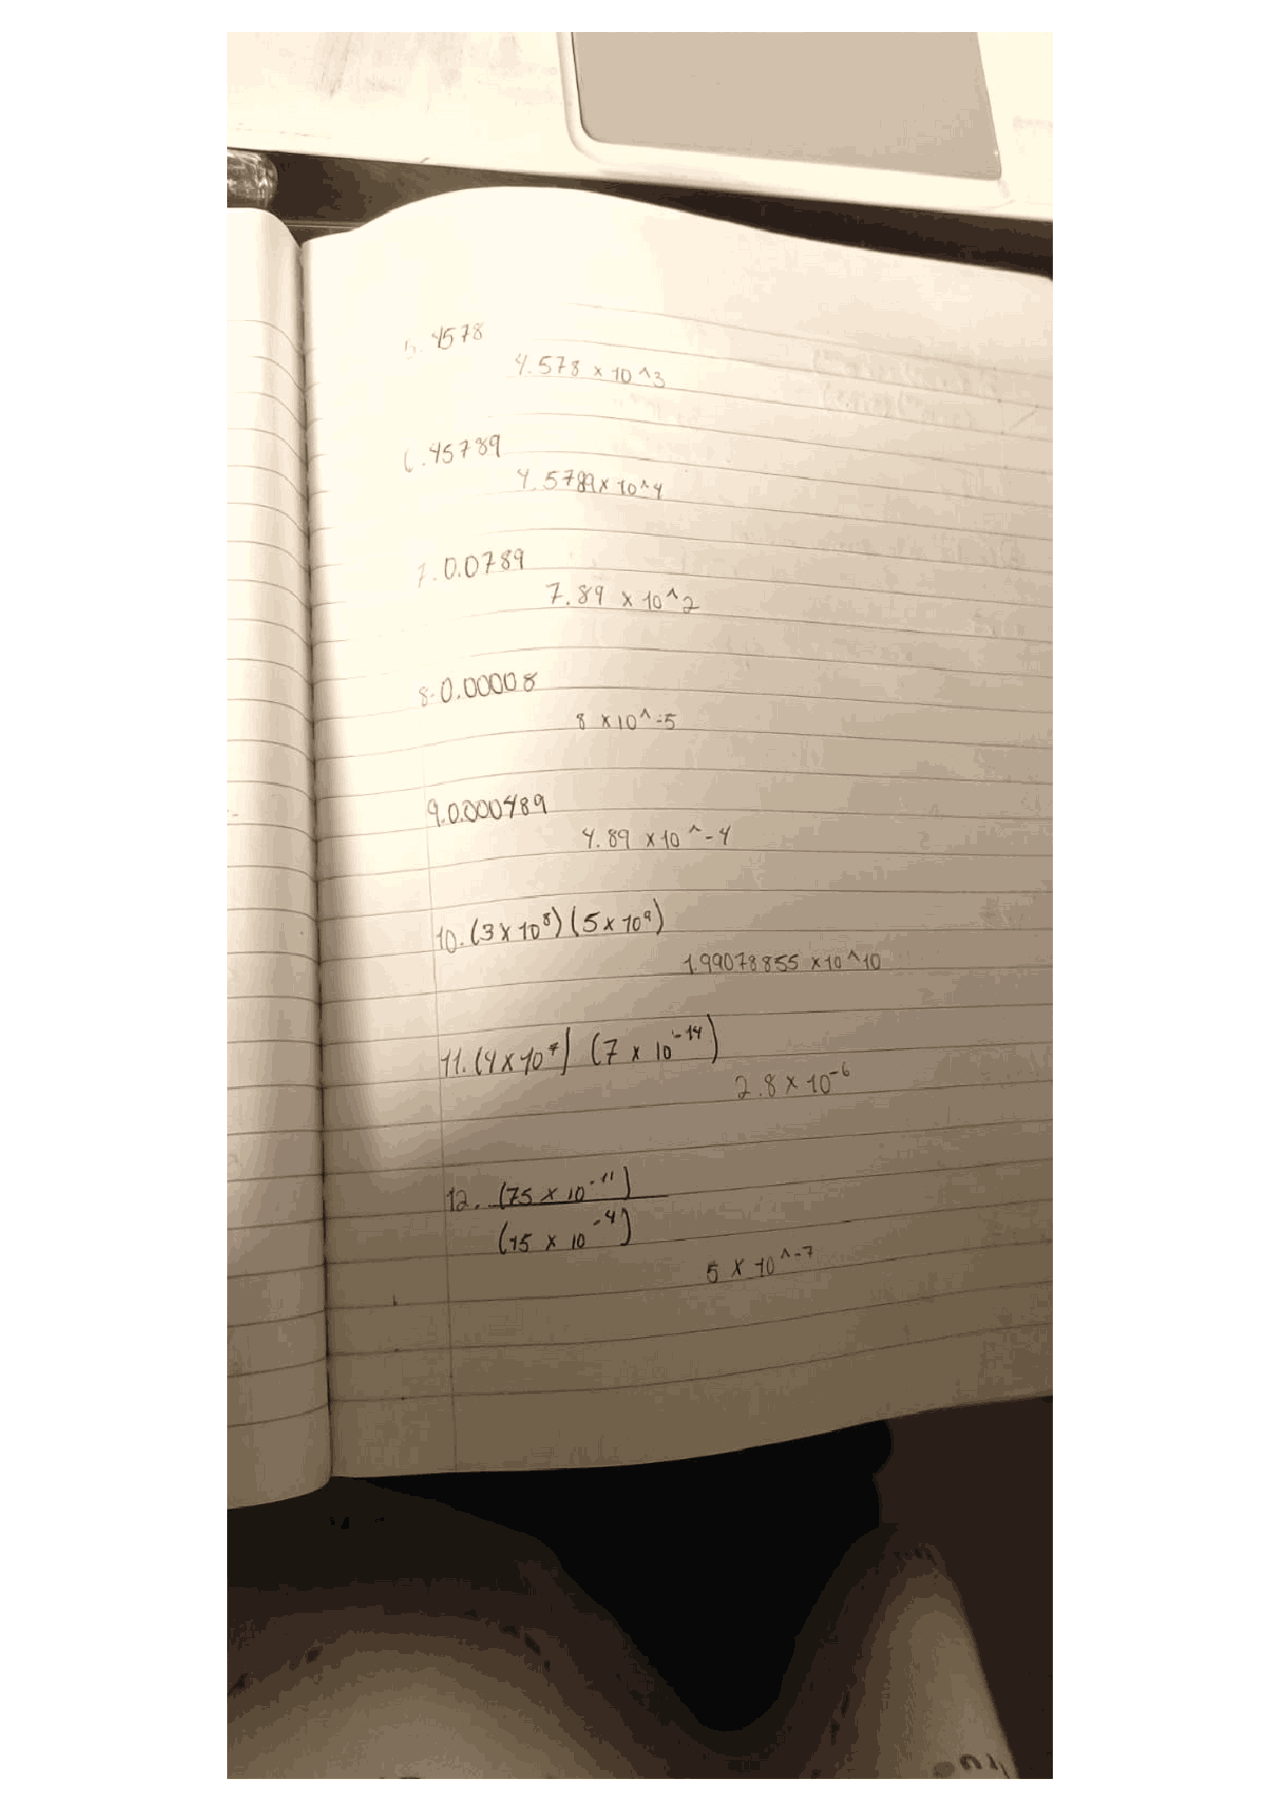 5. 4578
4.578 x 10^3
6. 45789
4.5789 x 10^4
7. 0.0789
7.89 x 10^2
8. 0.00008
8 x 10^-5
9. 0.000489
4.89 x 10^-4
10. (3 x 10⁸) (5 x 10⁹)
1.99078855 x 10^10
11. (4 x 10⁷) (7 x 10⁻¹⁴)
2.8 x 10⁻⁶
12. (75 x 10⁻¹¹)
(15 x 10⁻⁴)
5 x 10^-7